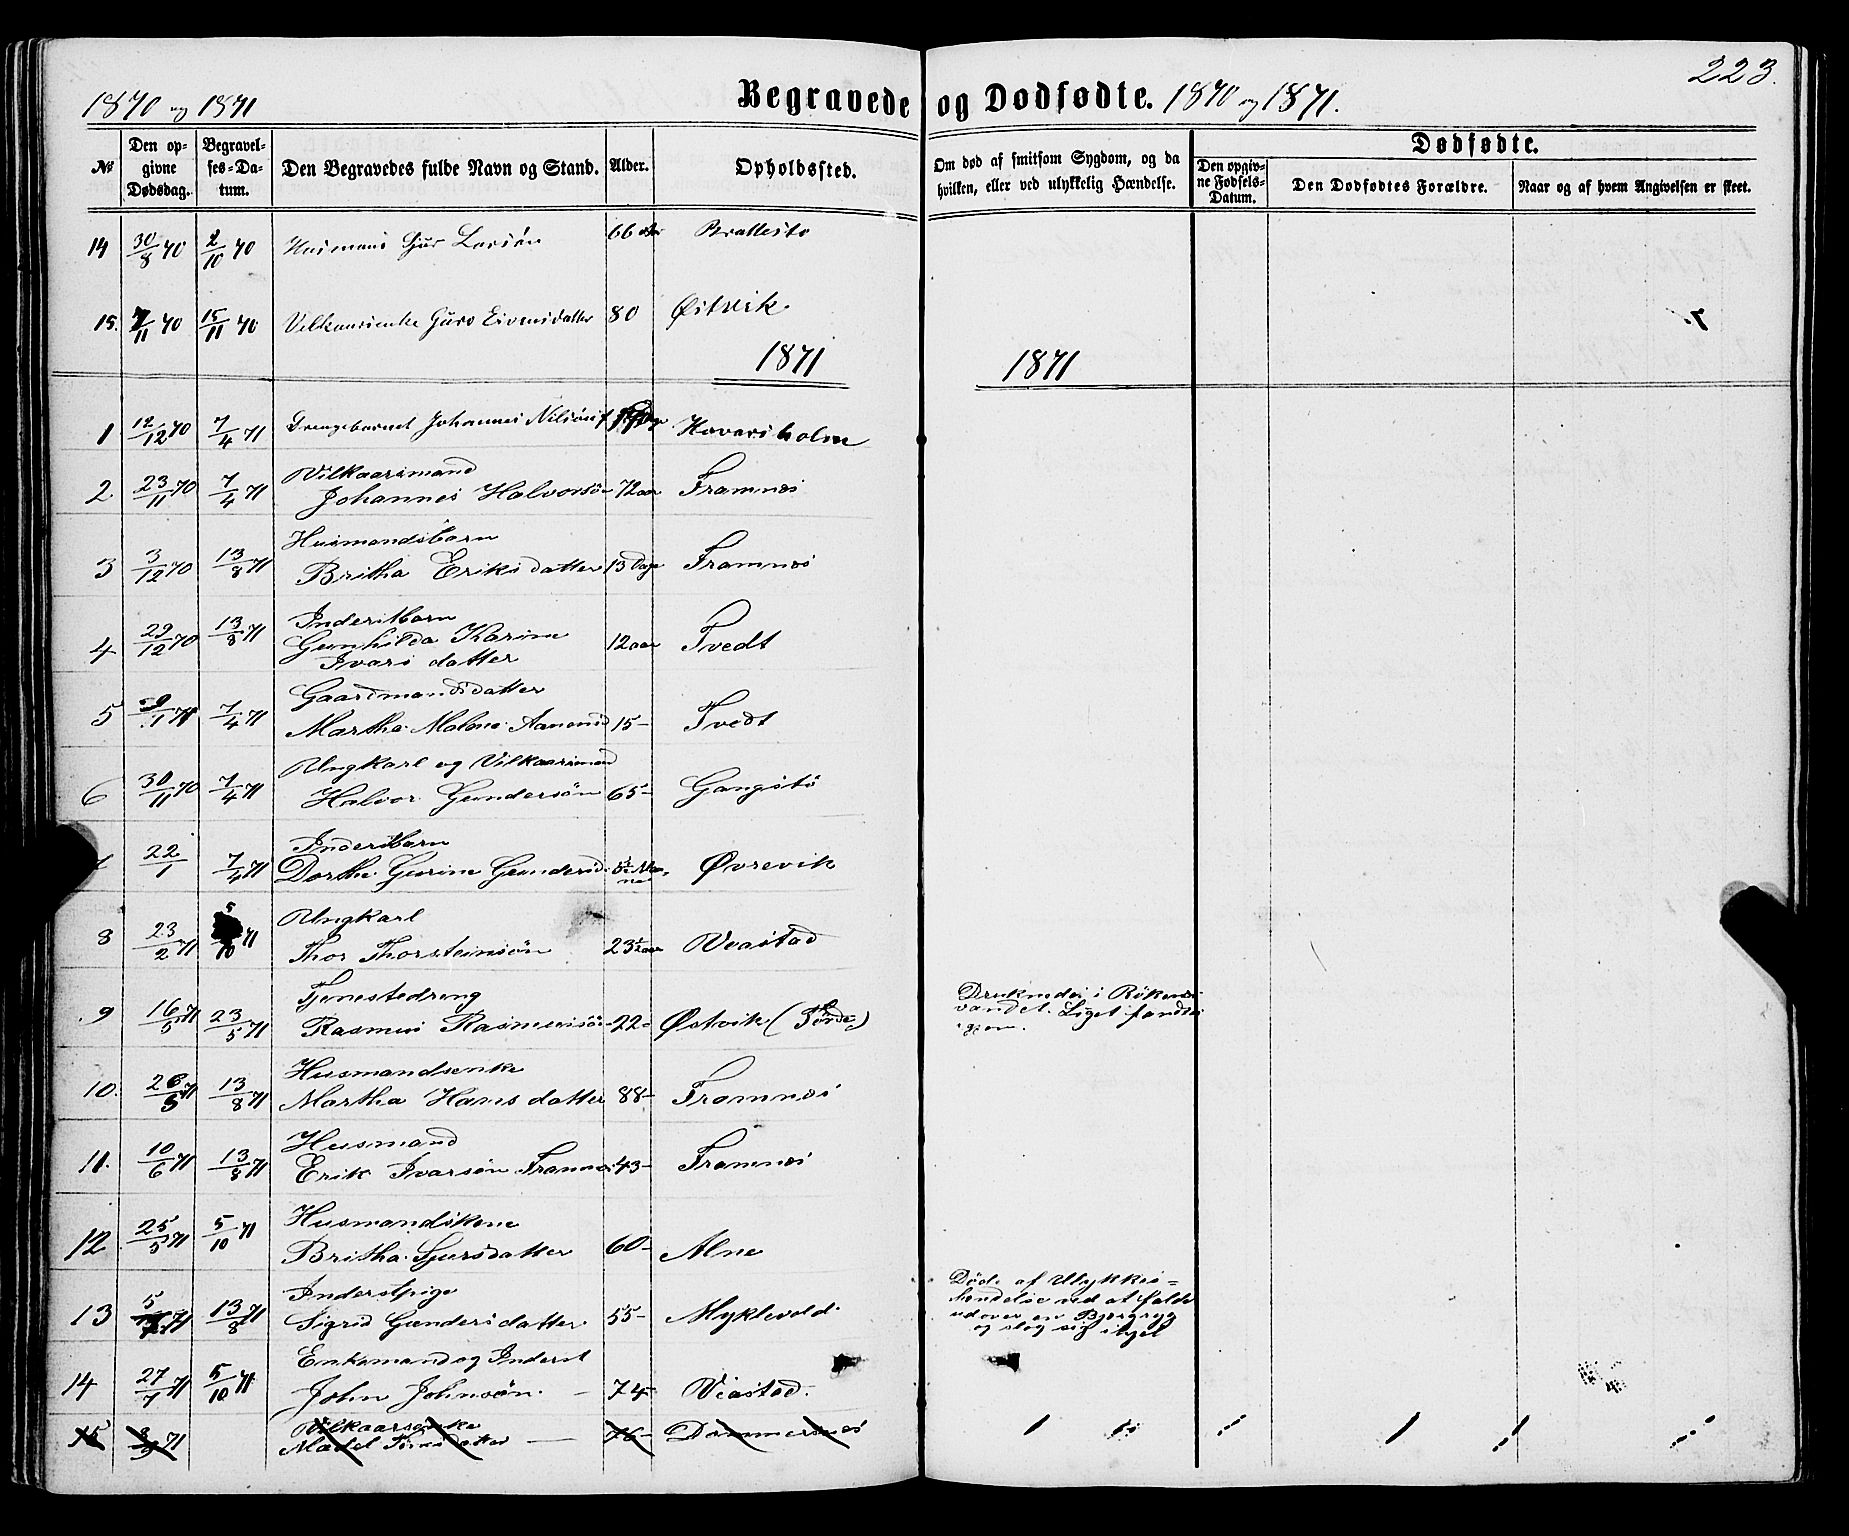 223.
1870 og 1871
Begravede og Dødfødte. 1870 og 1871.
№
Den opgivne Dødsdag.
Begravelses-Datum.
Den Begravedes fulde Navn og Stand.
Alder.
Opholdssted.
Om død af smitsom Sygdom, og da hvilken, eller ved ulykkelig Hændelse.
Dødfødte.
Den opgivne Fødsels-Datum.
Den Dødfødtes Forældre.
Naar og af hvem Angivelsen er skeet.
14 30/8 70 2/10 70 Husmand Gjur Larsön 66 aar
15. 7/11 70 15/11 70 Vilkaarsenke Guro Eivinsdatter 80 Østvik
1871 1871
1 12/12 70 7/4 71 Drengebarnet Johannes Nilsön Havarsholm
2 23/11 70 7/4 71 Vilkaarsmand
Johannes Halvorsön 72 aar Framnæs
3 3/12 70 13/8 71 Husmandsbarn
Britha Eriksdatter 13 Dage Framnæs
4 29/12 70 13/8 71 Inderstbarn
Gunhilda Karine
Ivarsdatter 12 aar Tvedt
5 9/1 71 7/4 71 Gaardmandsdatter
Martha Malene Aamunsd 15- Tvedt
6 30/11 70 7/4 71 Ungkarl og Vilkaarsmand
Halvor Gundersön 65- Gangstö
22/1 7/4 71 Inderstbarn
Dorthe Gurine Gundersd. Øvrevik
8 23/2 71 5/10 71 Ungkarl
Thor Thorsteinsön 23½ aar Veastad
9 16/5 71 23/5 71 Tjenestedreng
Rasmus Rasmussön 22- Østvik (Förde) Druknede i Rökenes-
vandet. Liget fandtes
igjen.
10. 26/5 71 13/8 71 Husmandsenke
Martha Hansdatter 88- Framnæs
11. 10/6 71 13/8 71 Husmand
Erik Ivarsön Framnæs 43- Framnæs
12 25/5 71 5/10 71 Husmandskone
Britha Sjursdatter 60- Alne
13 5/7 71 13/8 71 Inderstpige
Sigrid Gundersdatter 55- Myklevold Döde af Ulykkes-
hændelse ved at falde
udover en Bjergryg
og slog sig ihjel
14 27/7 71 5/10 71 Enkemand og Inderst
John Johnsön. - 74- Viastad.
15 8/9 71 Vilkaarsenke
76- Dommersnæs